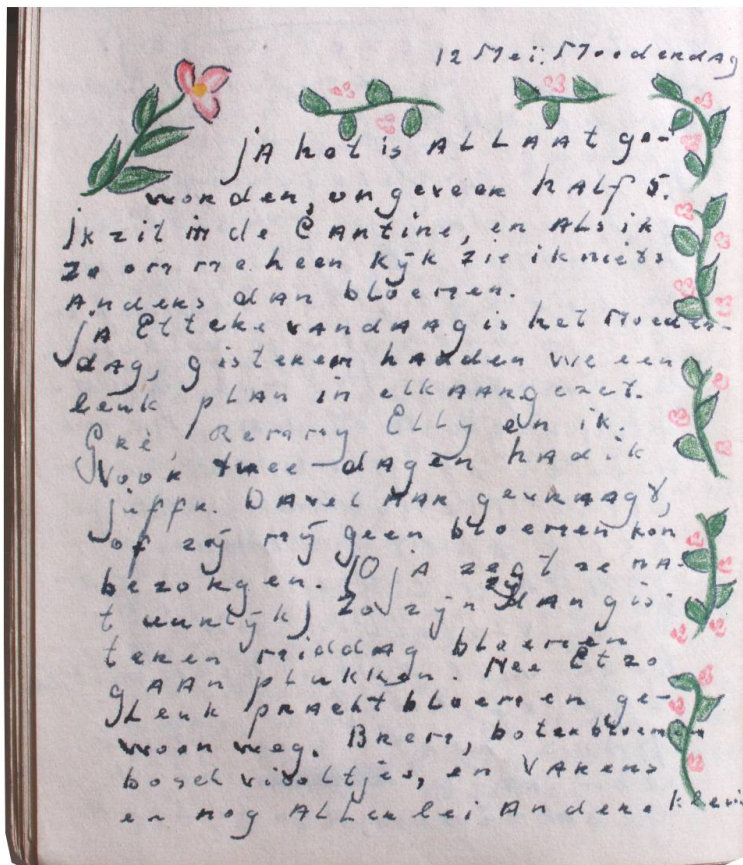 12 Mei: Moederdag
jA het is ALLAAt ge-
worden, ongeveer hALf 5.
Ik zit in de CAntine, en ALs ik
zo om me heen kijk zie ik niets
Anders dAn bloemen.
jA Etteke vAndAAg is het Moeder-
dAg, gisteren hadden we een
leuk plAn in elkAAr gezet.
Gré, Remmy Elly en ik.
Voor twee dAgen hAd ik
juffr. gevraAgt,
of zij mij geen bloemen kon
bezorgen. (O jA zegt ze nA-
tuurlijk) Zo zijn zij dAn gis-
teren middAg bloemen
gAAn plukken. Nee Et zo
Leuk prAcht bloemen ge-
woon weg. Brem, boterbloemen
bosch viooltjes, en VArens
en nog ALLerlei Andere klein